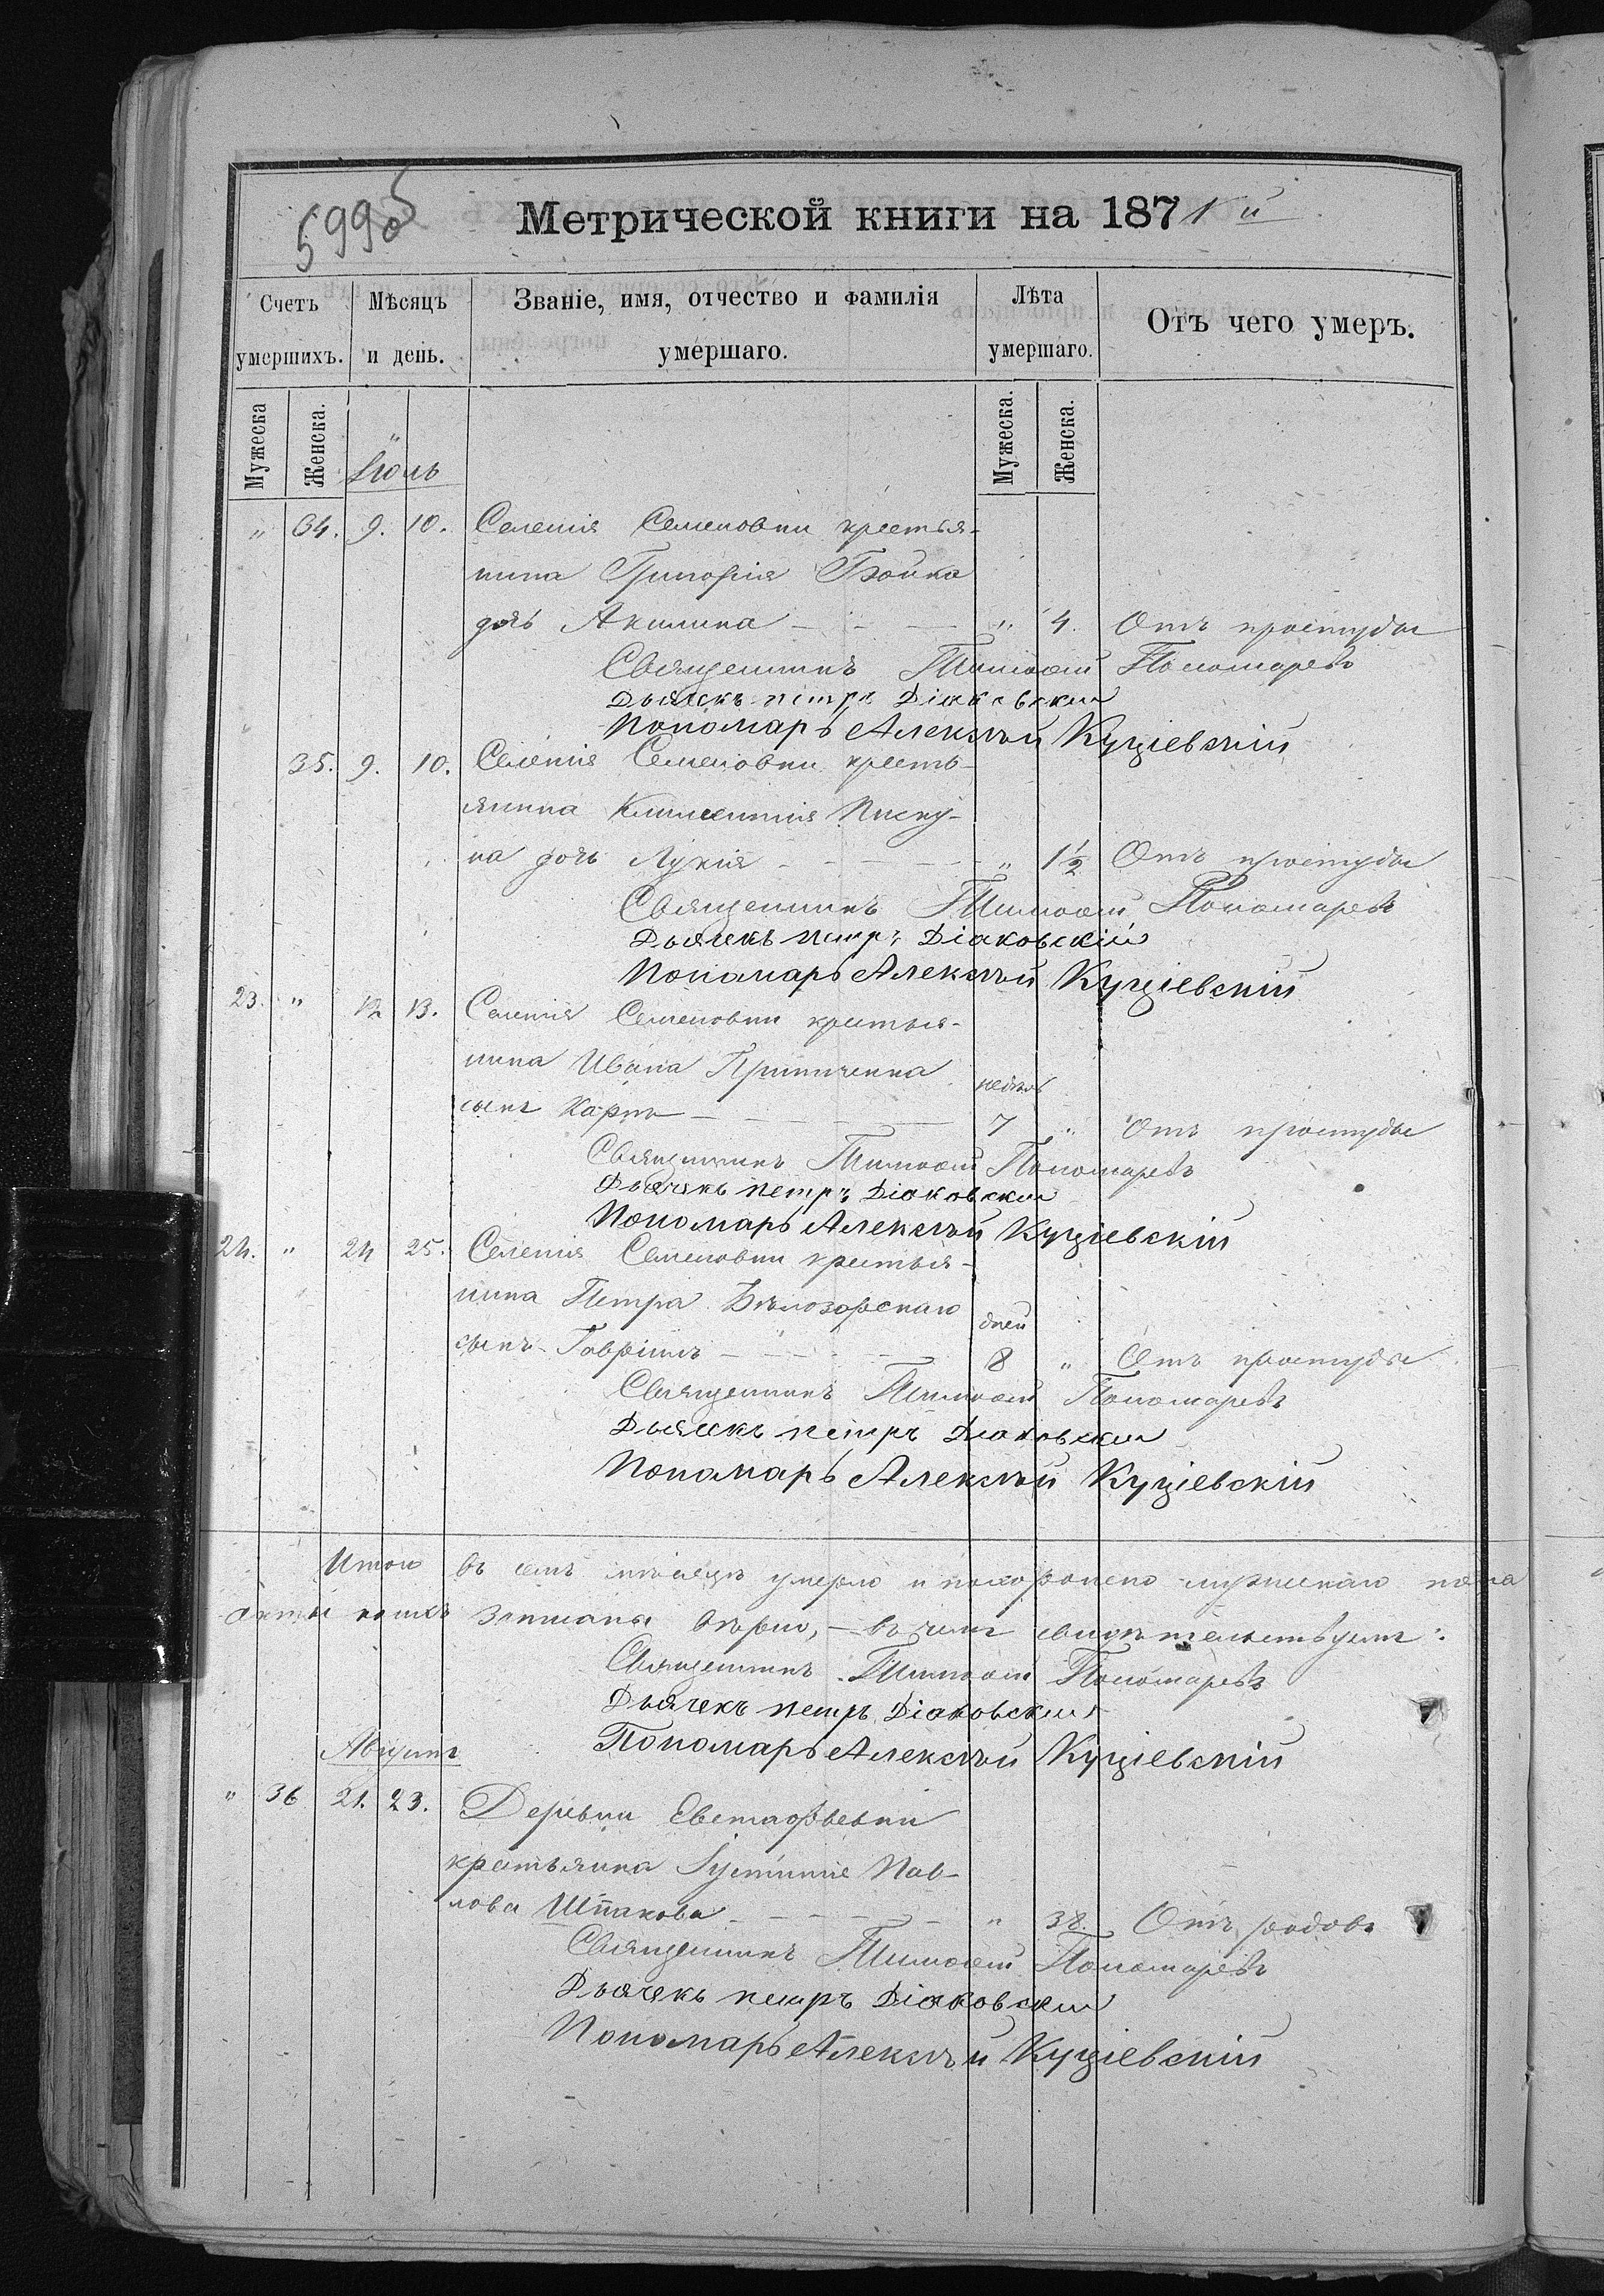 5995
Метрической книги на 1871й
Счетъ умершихъ.
Мѣсяцъ и день.
Званіе, имя, отчество и фамилія умершаго.
Лѣта умершаго.
Отъ чего умеръ.
Мужеска
Женска.
Мужеска.
Женска.
Іюль
" 34. 9. 10. Селенія Семеновки крестья-
нина Григорія Бойка
дочь Акилина — " 4. Отъ простуды
Священникъ Тимоѳей Пономаревъ
Дьячекъ петръ Діаковскій
Пономарь Алексѣй Куціевскій
35. 9. 10. Селенія Семеновки кресть-
янина Климентія Писку-
на дочь Лукія — " 1½ Отъ простуды
Священникъ Тимоѳей Пономаревъ
Дьячекъ петръ Діаковскій
Пономарь Алексѣй Куціевскій
23. " 12 13. Селенія Семеновки крестья-
нина Ивана Притиченка недѣль
сынъ Карпъ — 7 " Отъ простуды
Священникъ Тимоѳей Пономаревъ
Дьячекъ петръ Діаковскій
Пономарь Алексѣй Куціевскій
24. " 24 25. Селенія Семеновки крестья-
нина Петра Бѣлозорскаго дней
сынъ Гавріилъ — 8 " Отъ простуды
Священникъ Тимоѳей Пономаревъ
Дьячекъ петръ Діаковскій
Пономарь Алексѣй Куціевскій
Итого въ семъ мѣсяцѣ умерло и похоронено мужескаго пола
записаны вѣрно, — въ чемъ свидѣтельствуемъ:
Священникъ Тимоѳей Пономаревъ
Дьячекъ петръ Діаковскій
Пономарь Алексѣй Куціевскій
Августъ
" 36 21. 23. Деревни Евстафьевки
крестьянка Іустинія Пав-
лова Шпакова — " 38. Отъ родовъ
Священникъ Тимоѳей Пономаревъ
Дьячекъ петръ Діаковскій
Пономарь Алексѣй Куціевскій